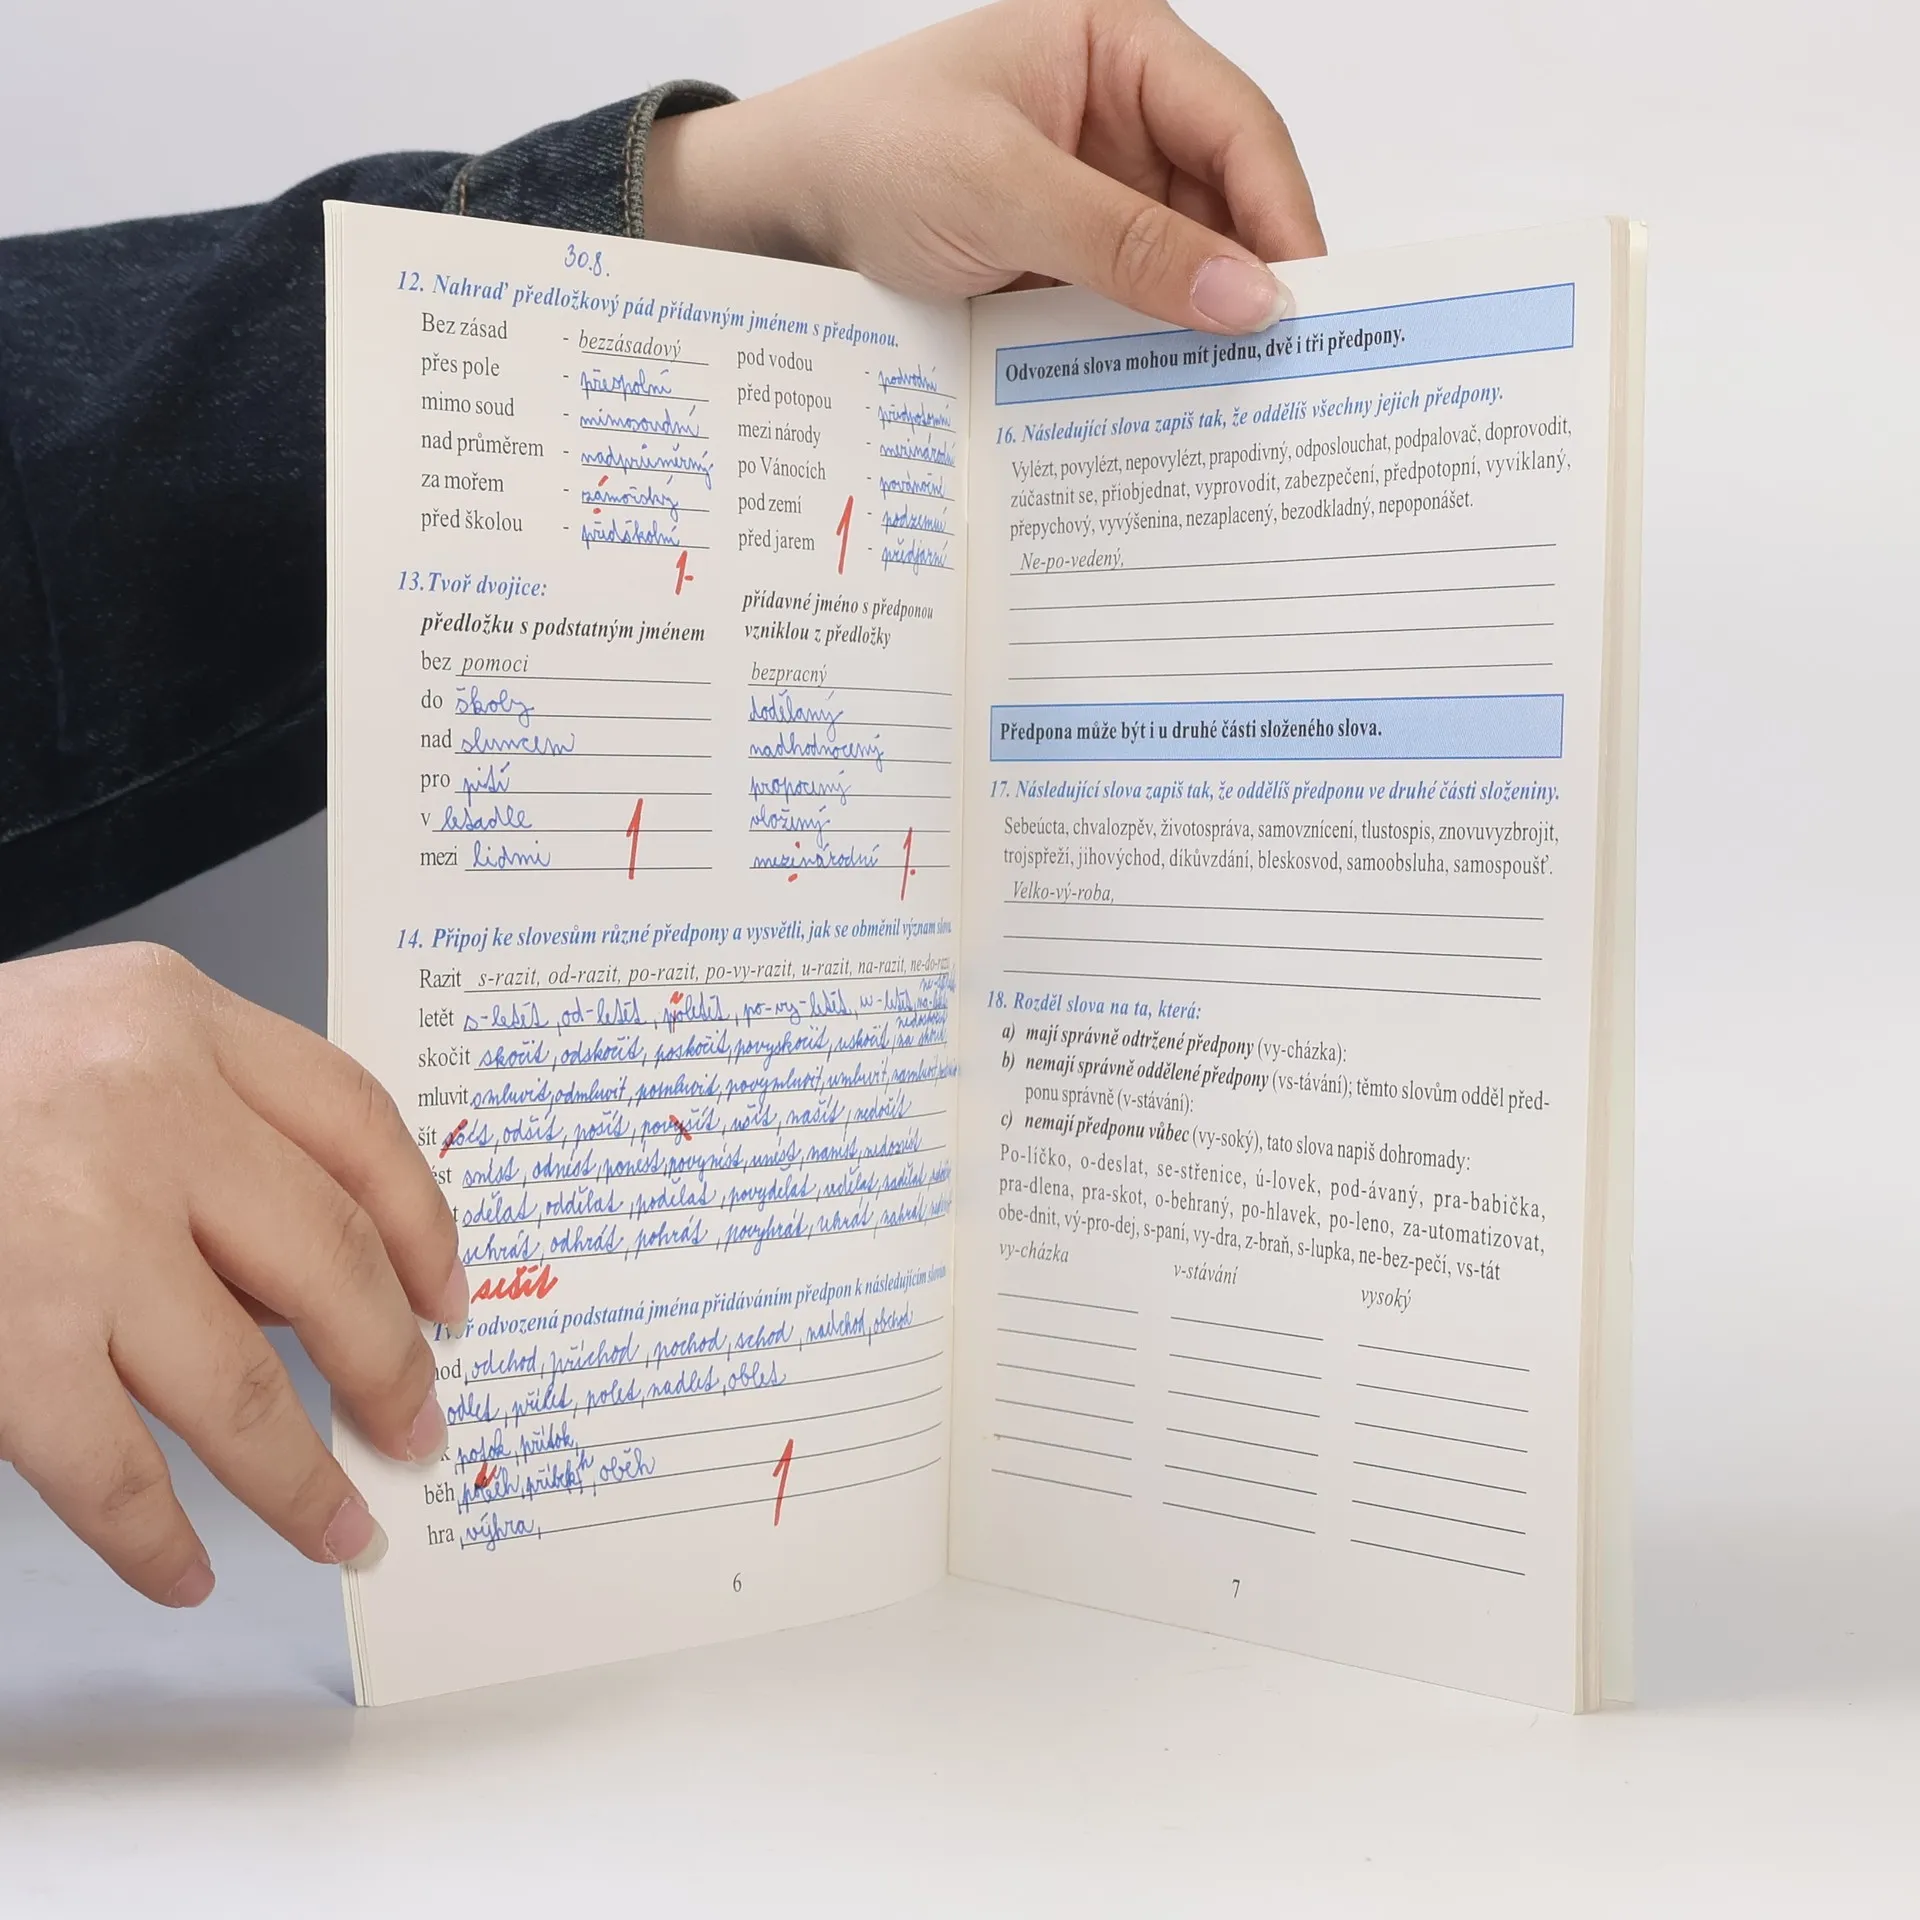 30.8.
12. Nahraď předložkový pád přídavným jménem s předponou.
Bez zásad - bezzásadový
přes pole - přespolní
mimo soud - mimosoudní
nad průměrem - nadprůměrný
za mořem - zámořský
před školou - předškolní
1-
pod vodou - podvodní
před potopou - předpotopní
mezi národy - mezinárodní
po Vánocích - povánoční
pod zemí - podzemní
před jarem - předjarní
1
13. Tvoř dvojice:
předložku s podstatným jménem
přídavné jméno s předponou
vzniklou z předložky
bez pomoci bezpracný
do školy dodělaný
nad sluncem nadhodnocený
pro pití propocený
v letadle vložený
mezi lidmi mezinárodní
1 1.
14. Připoj ke slovesům různé předpony a vysvětli, jak se obměnil význam slova.
Razit s-razit, od-razit, po-razit, po-vy-razit, u-razit, na-razit, ne-do-razit
letět s-letět, od-letět, poletět, po-vy-letět, u-letět, na-
skočit skočit, odskočit, poskočit, povyskočit, uskočit, na skočit,
mluvit smluvit, odmluvit, pomluvit, povymluvit, umluvit, namluvit,
šít odšít, pošít, povyšít, ušít, našít, nedošít
st snést, odnést, ponést, povynést, unést, nanést, nedonést
t sdělat, oddělat, podělat, povydělat, udělat, nadělat,
sehrát, odhrát, pohrát, povyhrát, uhrát, nahrát,
sešít
Tvoř odvozená podstatná jména přidáváním předpon k následujícím slovům
hod, odchod, příchod, pochod, schod, nadchod, obchod
odlet, přílet, polet, nadlet, oblet
k potok, přítok,
běh, poběh, příběh, oběh
hra, výhra,
1
6
Odvozená slova mohou mít jednu, dvě i tři předpony.
16. Následující slova zapiš tak, že oddělíš všechny jejich předpony.
Vylézt, povylézt, nepovylézt, prapodivný, odposlouchat, podpalovač, doprovodit,
zúčastnit se, přiobjednat, vyprovodit, zabezpečení, předpotopní, vyviklaný,
přepychový, vyvýšenina, nezaplacený, bezodkladný, nepoponášet.
Ne-po-vedený,
Předpona může být i u druhé části složeného slova.
17. Následující slova zapiš tak, že oddělíš předponu ve druhé části složeniny.
Sebeúcta, chvalozpěv, životospráva, samovznícení, tlustospis, znovuvyzbrojit,
trojspřeží, jihovýchod, díkůvzdání, bleskosvod, samoobsluha, samospoušť.
Velko-vý-roba,
18. Rozděl slova na ta, která:
a) mají správně odtržené předpony (vy-cházka):
b) nemají správně oddělené předpony (vs-távání); těmto slovům odděl před-
ponu správně (v-stávání):
c) nemají předponu vůbec (vy-soký), tato slova napiš dohromady:
Po-líčko, o-deslat, se-střenice, ú-lovek, pod-ávaný, pra-babička,
pra-dlena, pra-skot, o-behraný, po-hlavek, po-leno, za-utomatizovat,
obe-dnit, vý-pro-dej, s-paní, vy-dra, z-braň, s-lupka, ne-bez-pečí, vs-tát
vy-cházka v-stávání vysoký
7